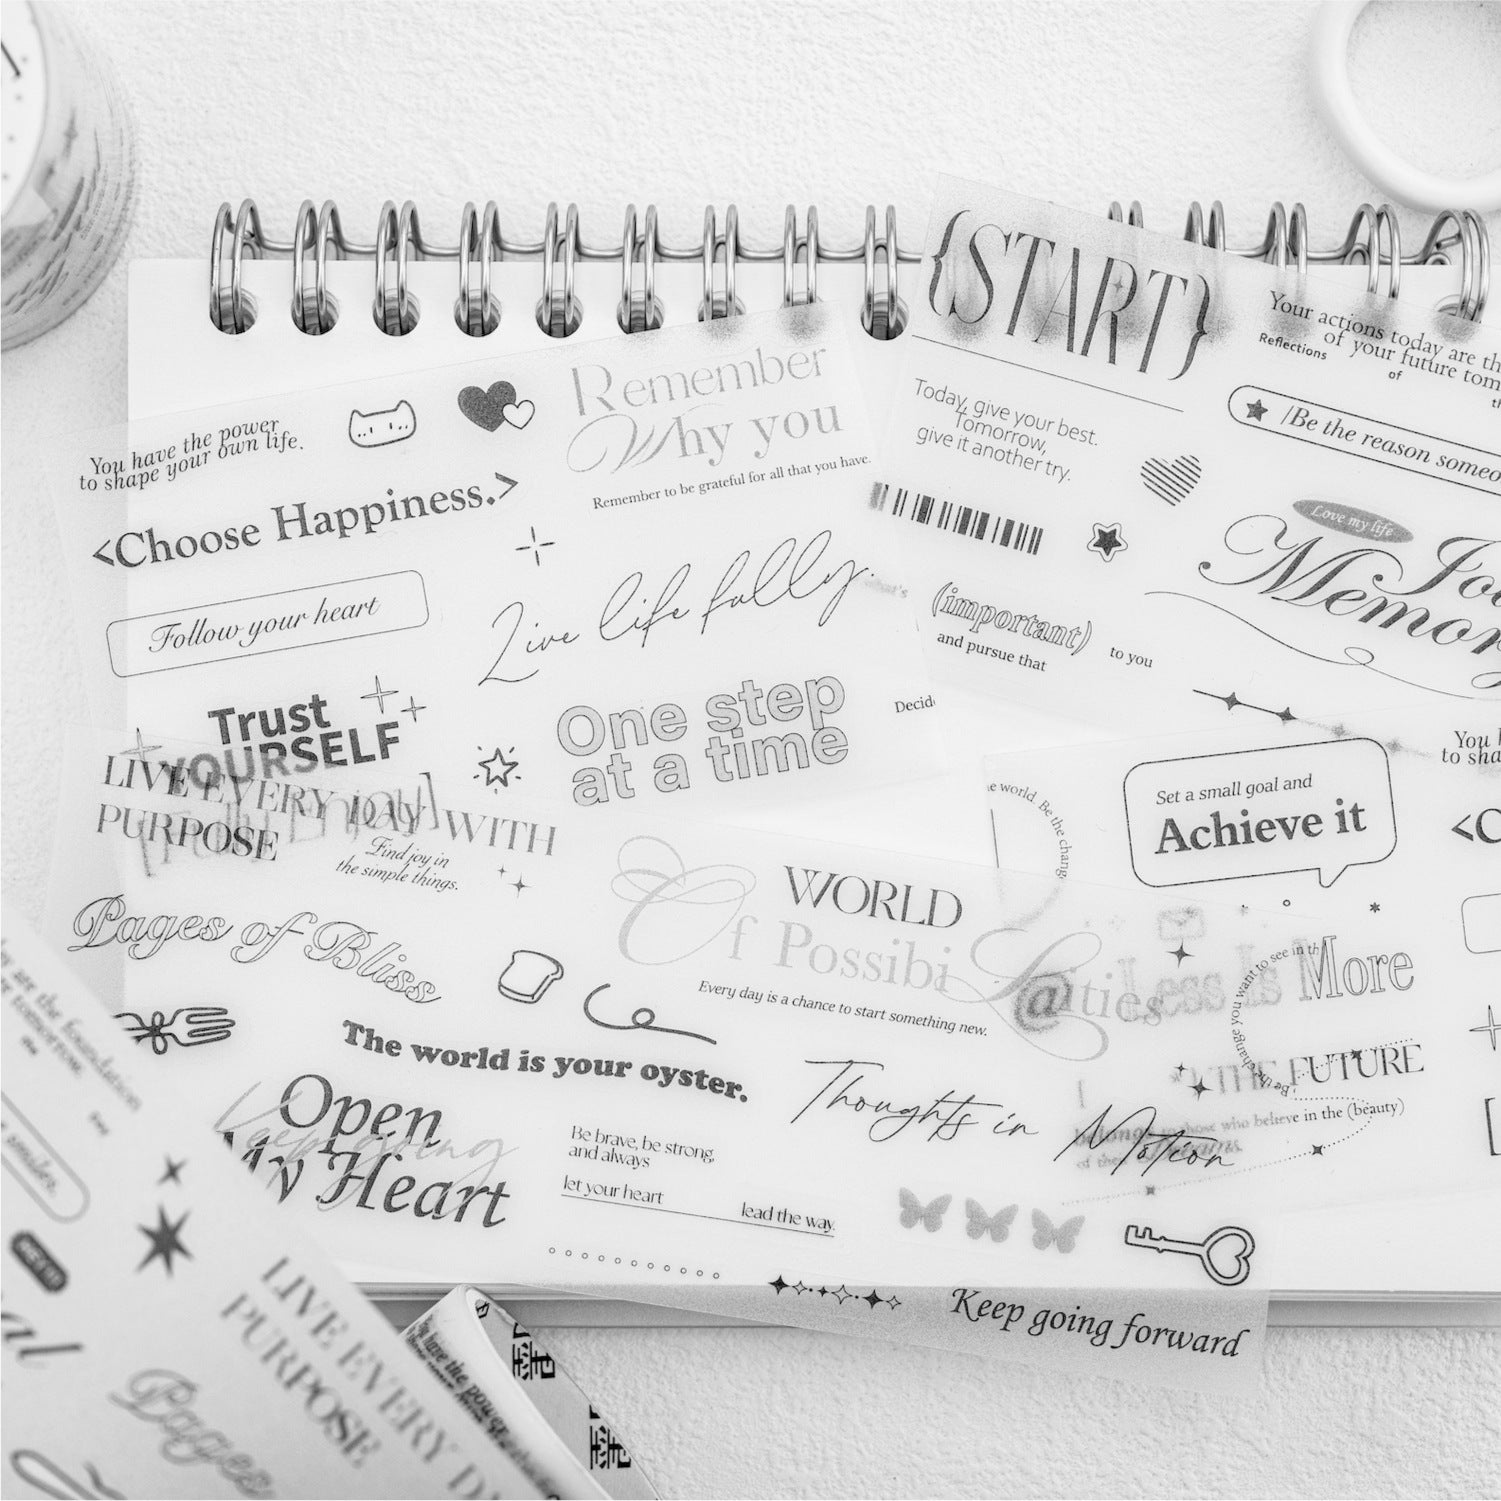 {START}
Your actions today are th
of your future tom
Reflections
of
/Be the reason someo
Today, give your best.
Tomorrow,
give it another try.
Love my life
Memor
(important)
and pursue that
to you
You have the power
to shape your own life.
Remember
Why you
Remember to be grateful for all that you have.
<Choose Happiness.>
Follow your heart
Live life fully.
Trust
YOURSELF
One step
at a time
Decid
Set a small goal and
Achieve it
to sha
<C
LIVE EVERY DAY WITH
PURPOSE
Find joy in
the simple things.
e world. Be the change
Pages of Bliss
WORLD
Of Possibilities
Every day is a chance to start something new.
Less Is More
you want to see in th
THE FUTURE
who believe in the (beauty)
The world is your oyster.
Open
My Heart
Keep going
Be brave, be strong,
and always
let your heart
lead the way.
Thoughts in Motion
Keep going forward
are the foundation
tomorrow.
the
smile.
al
LIVE EVERY D
PURPOSE
Pages
have the power